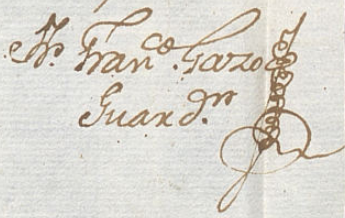 Fr. Franco. Garzo
Guardn.